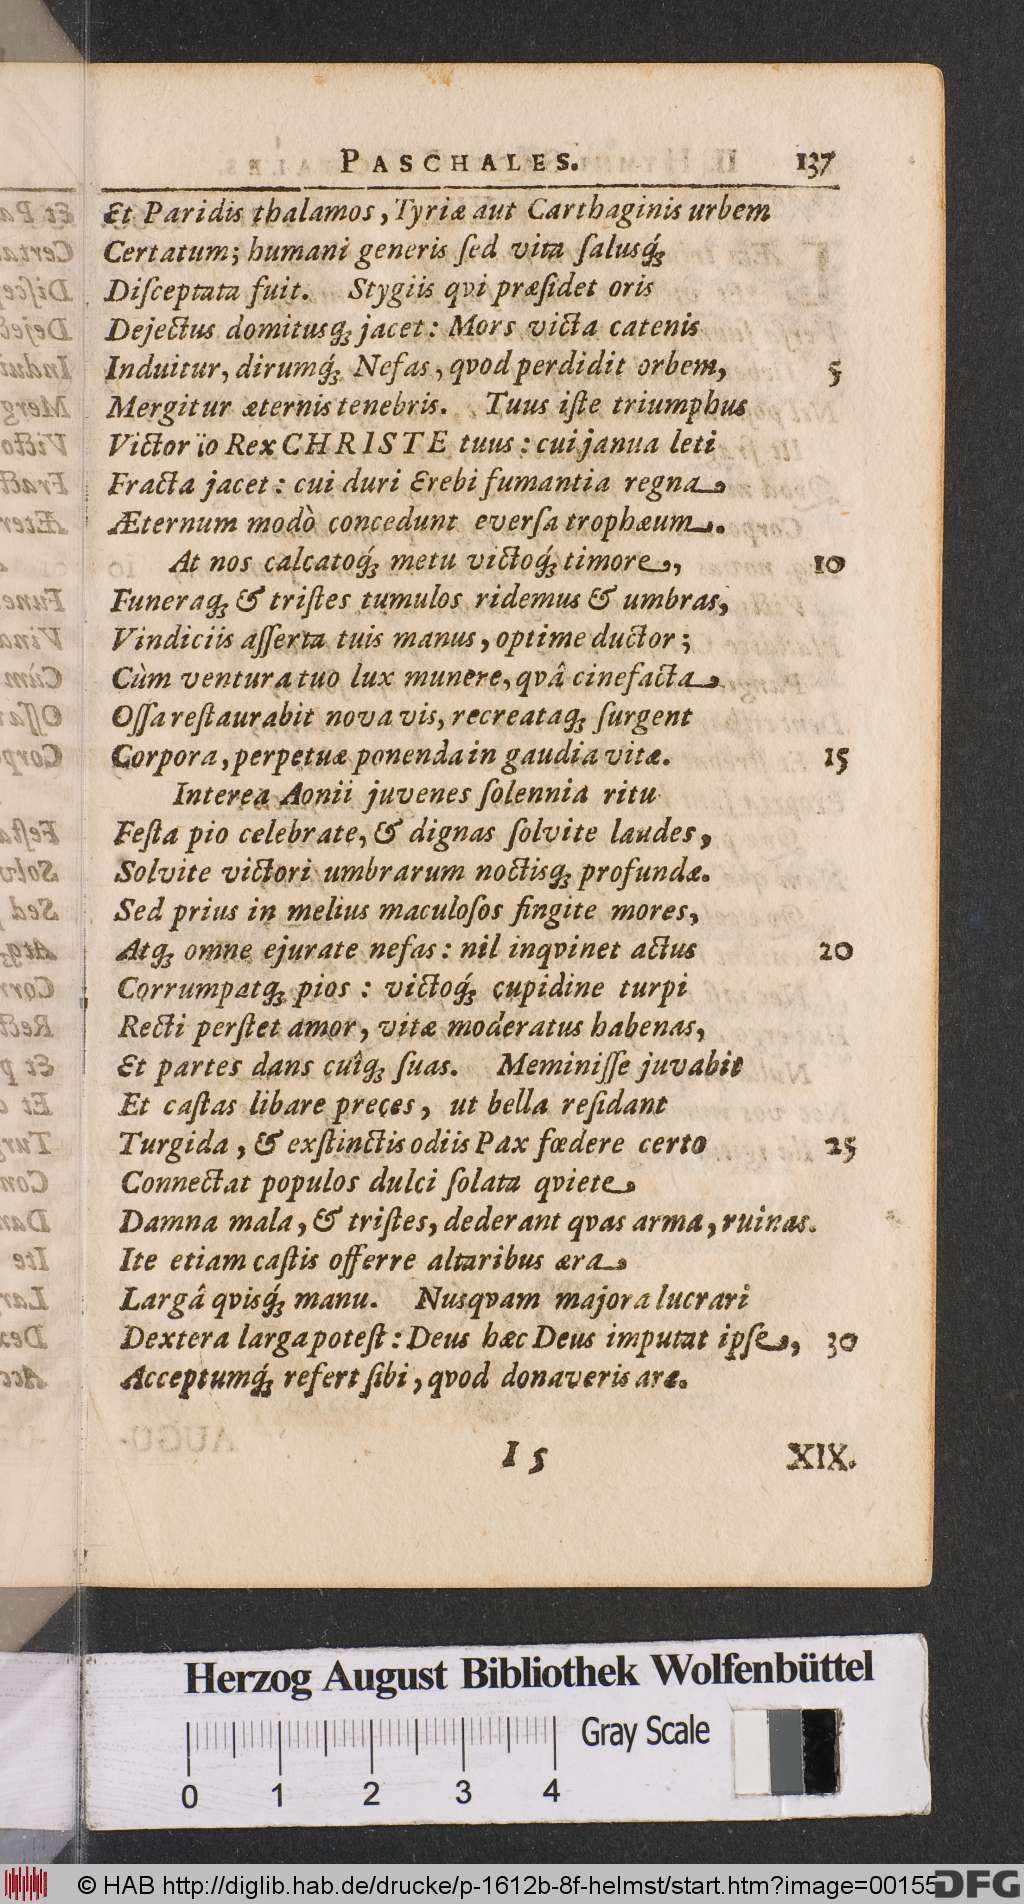 PASCHALES. 137
Et Paridis thalamos, Tyriæ aut Carthaginis urbem
Certatum; humani generis ſed vita ſalusq́;
Diſceptata fuit. Stygiis qvi præſidet oris
Dejectus domitusq; jacet: Mors victa catenis
Induitur, dirumq́; Nefas, qvod perdidit orbem, 5
Mergitur æternis tenebris. Tuus iſte triumphus
Victor ïo Rex CHRISTE tuus: cui janua leti
Fracta jacet: cui duri Erebi fumantia regna
Æternum modò concedunt everſa trophæum.
At nos calcatoq́; metu victoq́; timore, 10
Funeraq; & triſtes tumulos ridemus & umbras,
Vindiciis aſſerta tuis manus, optime ductor;
Cùm ventura tuo lux munere, qvâ cinefacta
Oſſa reſtaurabit nova vis, recreataq; ſurgent
Corpora, perpetuæ ponenda in gaudia vitæ. 15
Interea Aonii juvenes ſolennia ritu
Feſta pio celebrate, & dignas ſolvite laudes,
Solvite victori umbrarum noctisq; profundæ.
Sed prius in melius maculoſos fingite mores,
Atq; omne ejurate nefas: nil inqvinet actus 20
Corrumpatq; pios: victoq́; cupidine turpi
Recti perſtet amor, vitæ moderatus habenas,
Et partes dans cuîq; ſuas. Meminiſſe juvabit
Et caſtas libare preces, ut bella reſidant
Turgida, & exſtinctis odiis Pax fœdere certo 25
Connectat populos dulci ſolata qviete
Damna mala, & triſtes, dederant qvas arma, ruinas.
Ite etiam caſtis offerre altaribus æra
Largâ qvisq́; manu. Nusqvam majora lucrari
Dextera larga poteſt: Deus hæc Deus imputat ipſe, 30
Acceptumq́; refert ſibi, qvod donaveris aræ.
I 5 XIX.
Herzog August Bibliothek Wolfenbüttel
Gray Scale
0 1 2 3 4
© HAB http://diglib.hab.de/drucke/p-1612b-8f-helmst/start.htm?image=00155
DFG